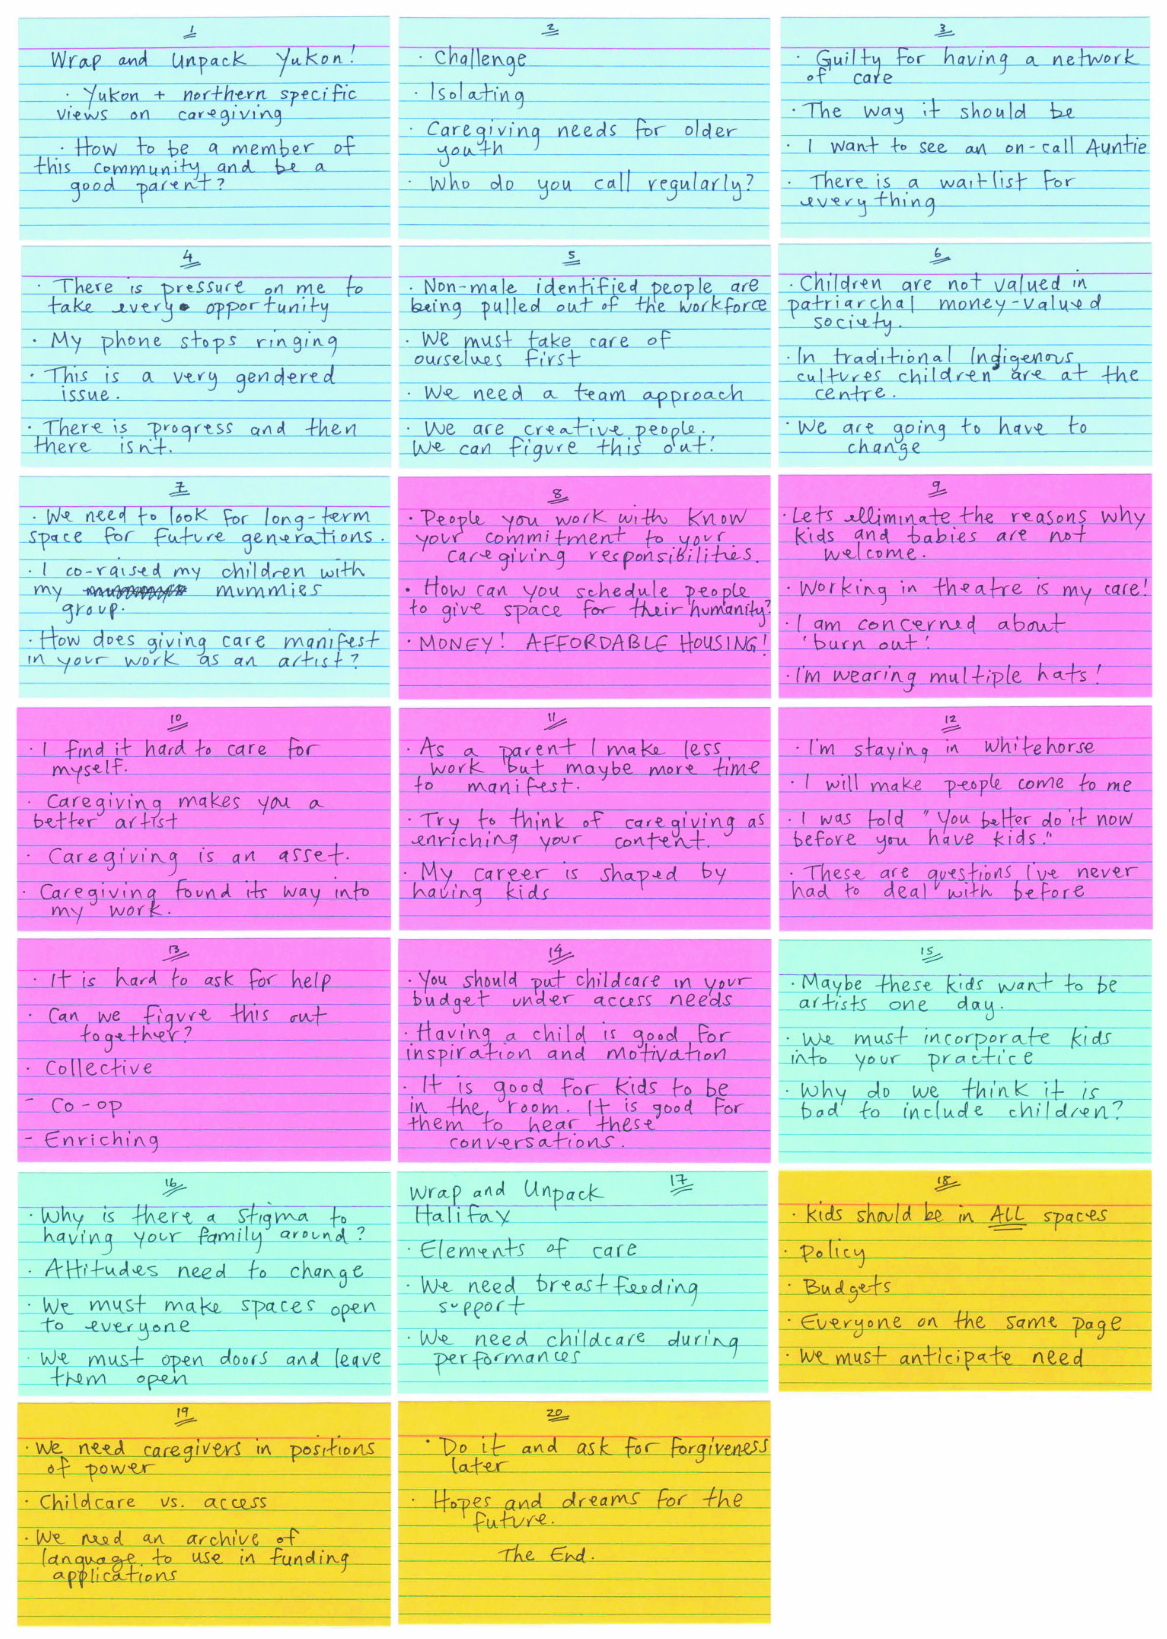 1
Wrap and Unpack Yukon!
· Yukon + northern specific
views on caregiving
· How to be a member of
this community and be a
good parent?
2
· Challenge
· Isolating
· Caregiving needs for older
youth
· Who do you call regularly?
3
· Guilty for having a network
of care
· The way it should be
· I want to see an on-call Auntie
· There is a waitlist for
everything
4
· There is pressure on me to
take every opportunity
· My phone stops ringing
· This is a very gendered
issue.
· There is progress and then
there isn't.
5
· Non-male identified people are
being pulled out of the workforce
· We must take care of
ourselves first
· We need a team approach
· We are creative people.
We can figure this out!
6
· Children are not valued in
patriarchal money-valued
society.
· In traditional Indigenous
cultures children are at the
centre.
· We are going to have to
change
7
· We need to look for long-term
space for future generations.
· I co-raised my children with
my mummies
group.
· How does giving care manifest
in your work as an artist?
8
· People you work with know
your commitment to your
caregiving responsibilities.
· How can you schedule people
to give space for their humanity?
· MONEY! AFFORDABLE HOUSING!
9
· Lets elliminate the reasons why
kids and babies are not
welcome.
· Working in theatre is my care!
· I am concerned about
'burn out'.
· I'm wearing multiple hats!
10
· I find it hard to care for
myself.
· Caregiving makes you a
better artist
· Caregiving is an asset.
· Caregiving found its way into
my work.
11
· As a parent I make less
work but maybe more time
to manifest.
· Try to think of caregiving as
enriching your content.
· My career is shaped by
having kids
12
· I'm staying in Whitehorse
· I will make people come to me
· I was told "You better do it now
before you have kids."
· These are questions I've never
had to deal with before
13
· It is hard to ask for help
· Can we figure this out
together?
· Collective
- Co-op
- Enriching
14
· You should put childcare in your
budget under access needs
· Having a child is good for
inspiration and motivation
· It is good for kids to be
in the room. It is good for
them to hear these
conversations.
15
· Maybe these kids want to be
artists one day.
· We must incorporate kids
into your practice
· Why do we think it is
bad to include children?
16
· Why is there a stigma to
having your family around?
· Attitudes need to change
· We must make spaces open
to everyone
· We must open doors and leave
them open
17
Wrap and Unpack
Halifax
· Elements of care
· We need breastfeeding
support
· We need childcare during
performances
18
· Kids should be in ALL spaces
· Policy
· Budgets
· Everyone on the same page
· We must anticipate need
19
· We need caregivers in positions
of power
· Childcare vs. access
· We need an archive of
language to use in funding
applications
20
· Do it and ask for forgiveness
later
· Hopes and dreams for the
future.
The End.